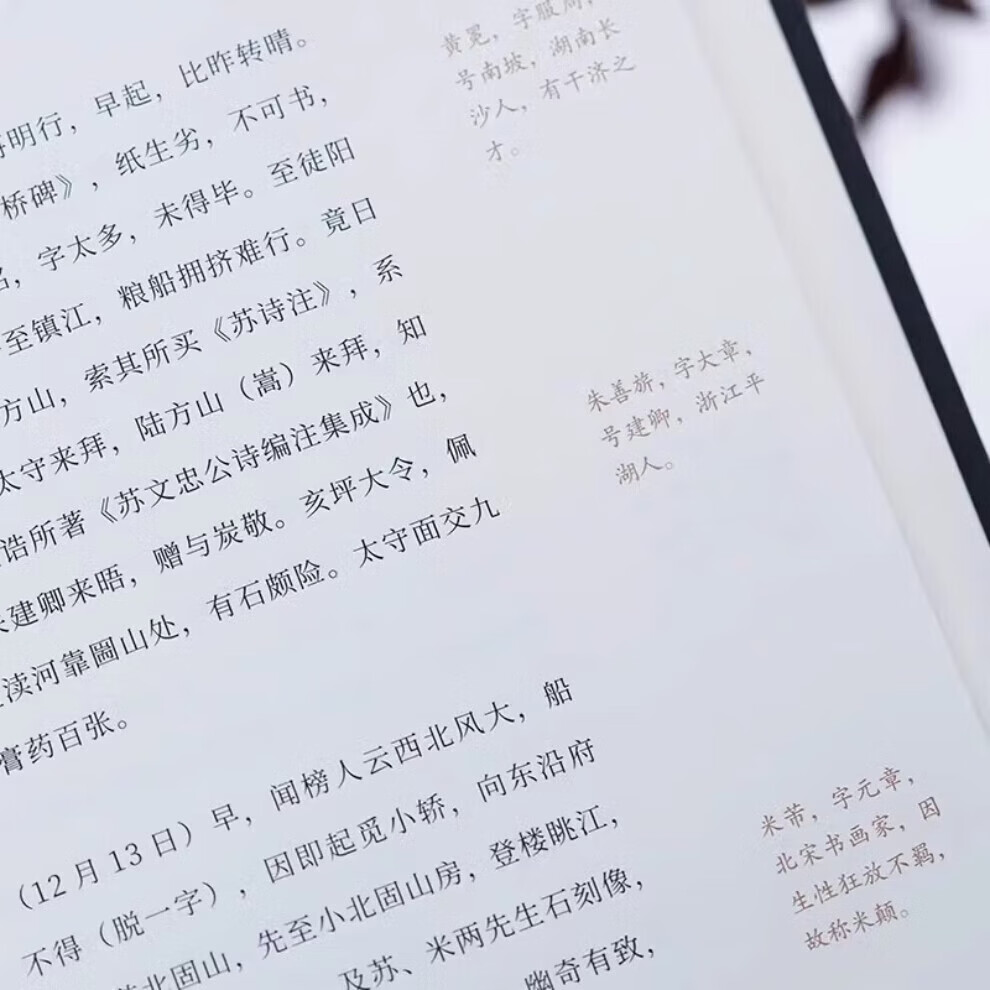 明行，早起，比昨转晴。
桥碑》，纸生劣，不可书，
，字太多，未得毕。至徒阳
至镇江，粮船拥挤难行。竟日
方山，索其所买《苏诗注》，系
太守来拜，陆方山（嵩）来拜，知
诰所著《苏文忠公诗编注集成》也，
建卿来晤，赠与炭敬。亥坪大令，佩
渎河靠圌山处，有石颇险。太守面交九
膏药百张。
（12月13日）早，闻榜人云西北风大，船
不得（脱一字），因即起觅小轿，向东沿府
北固山，先至小北固山房，登楼眺江，
及苏、米两先生石刻像，
幽奇有致，
黄冕，字服周，
号南坡，湖南长
沙人，有干济之
才。
朱善旂，字大章，
号建卿，浙江平
湖人。
米芾，字元章，
北宋书画家，因
生性狂放不羁，
故称米颠。